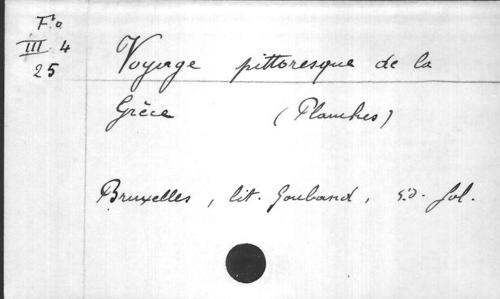 Fª a
III 4
25
Voyage pittoresque de la
Grèce (Planches)
Bruxelles, lit. Gouband, s.d. fol.